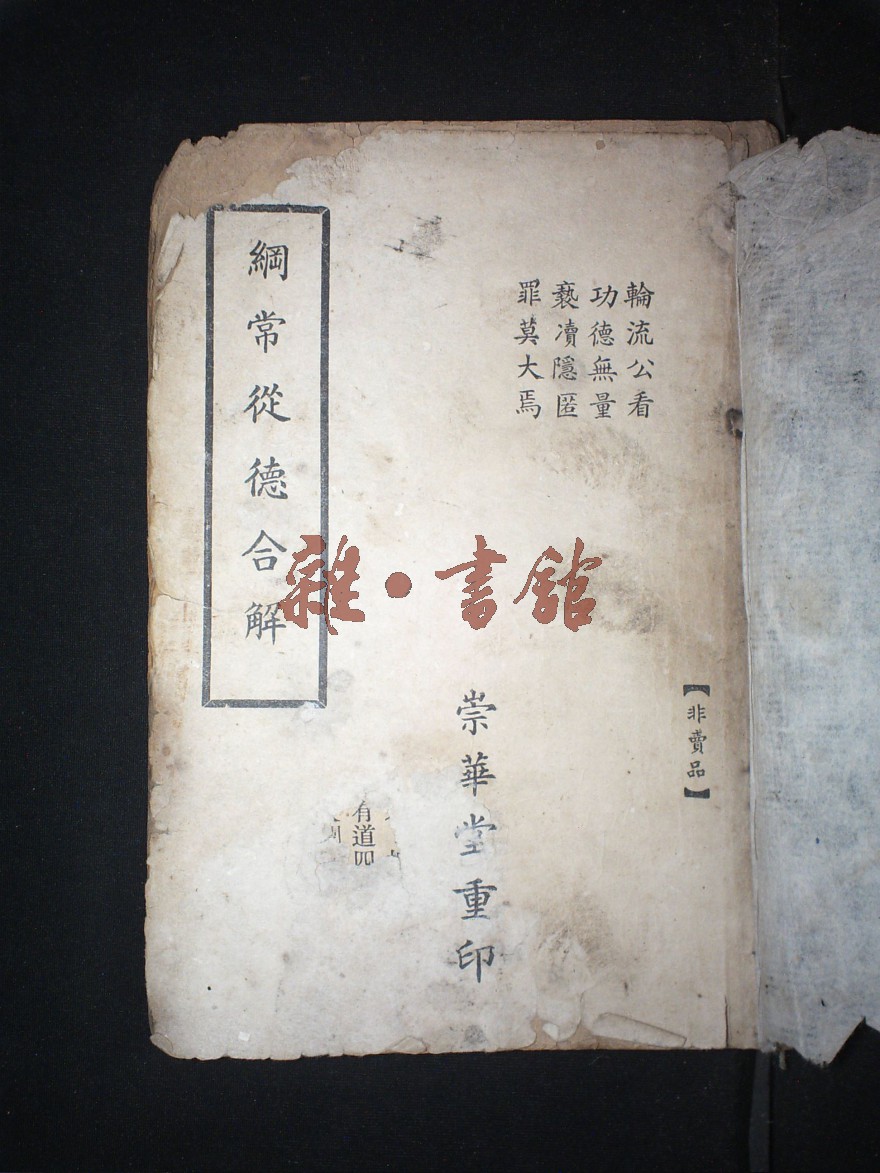 輪流公看
功德無量
褻凟隱匿
罪莫大焉
【非賣品】
崇華堂重印
綱常從德合解
有道
雜·書館